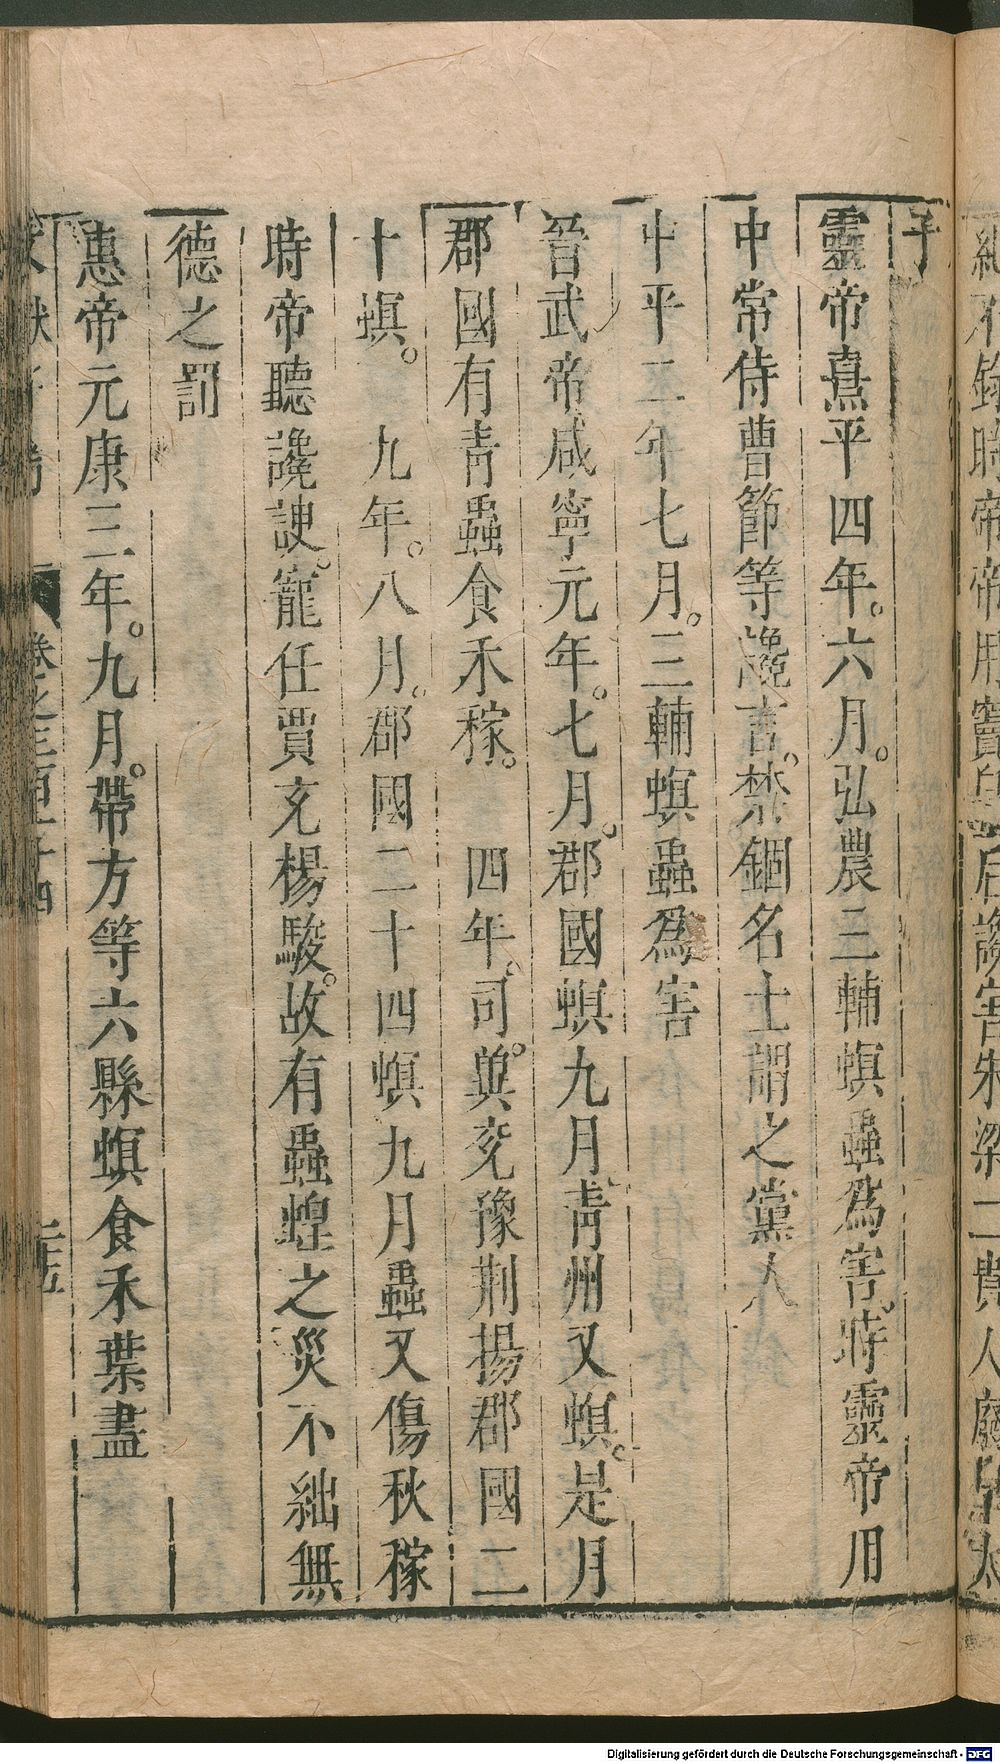 紀不錄時帝帝用竇皇后讒害宋梁二貴人廢皇太
子
靈帝熹平四年。六月。弘農三輔螟蟲爲害。時靈帝用
中常侍曹節等讒言。禁錮名士謂之黨人
中平二年七月。三輔螟蟲爲害
晉武帝咸寧元年。七月。郡國螟九月。青州又螟。是月
郡國有青蟲食禾稼。　四年。司。冀兗豫荆揚郡國二
十螟。　九年。八月。郡國二十四螟九月蟲又傷秋稼
時帝聽讒諛。寵任賈充楊駿。故有蟲蝗之災不絀無
德之罰
惠帝元康三年。九月。帶方等六縣螟食禾葉盡
文獻通考　卷之三百十四　二五
Digitalisierung gefördert durch die Deutsche Forschungsgemeinschaft - DFG